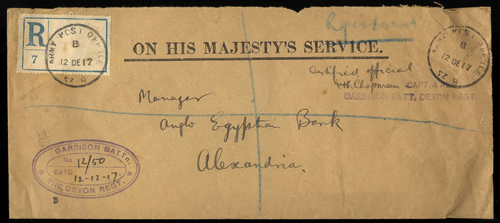 R
7
ARMY POST OFFICE
B
12 DE 17
SZ 8
Registered
ARMY POST OFFICE
B
12 DE 17
SZ 8
ON HIS MAJESTY'S SERVICE.
Certified official
Chapman CAPT &
GARRISON BATT. DEVON REGT.
Manager
Anglo Egyptian Bank
Alexandria.
GARRISON BATTN.
No. 12/50
DATE 12-12-17.
THE DEVON REGT.
B